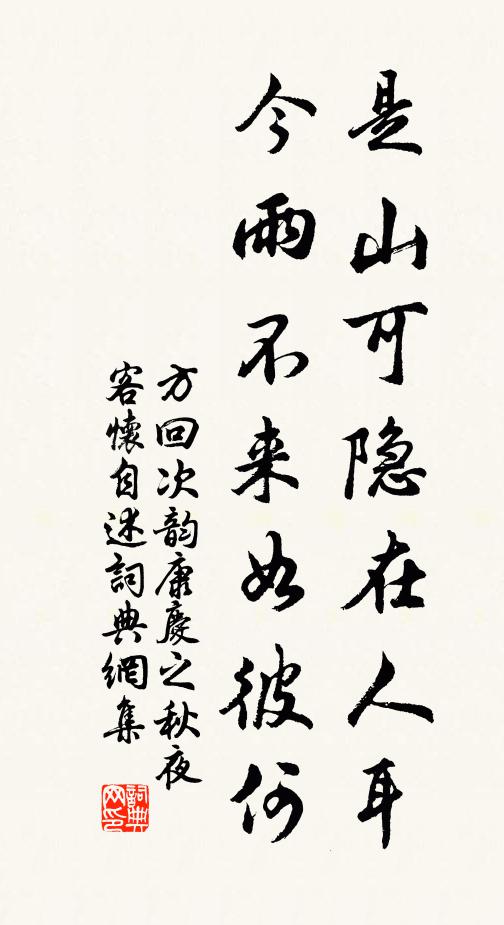 是山可隐在人耳
今雨不来如彼何
方回次韵康庆之秋夜
客懷自述詞典網集
詞典网印